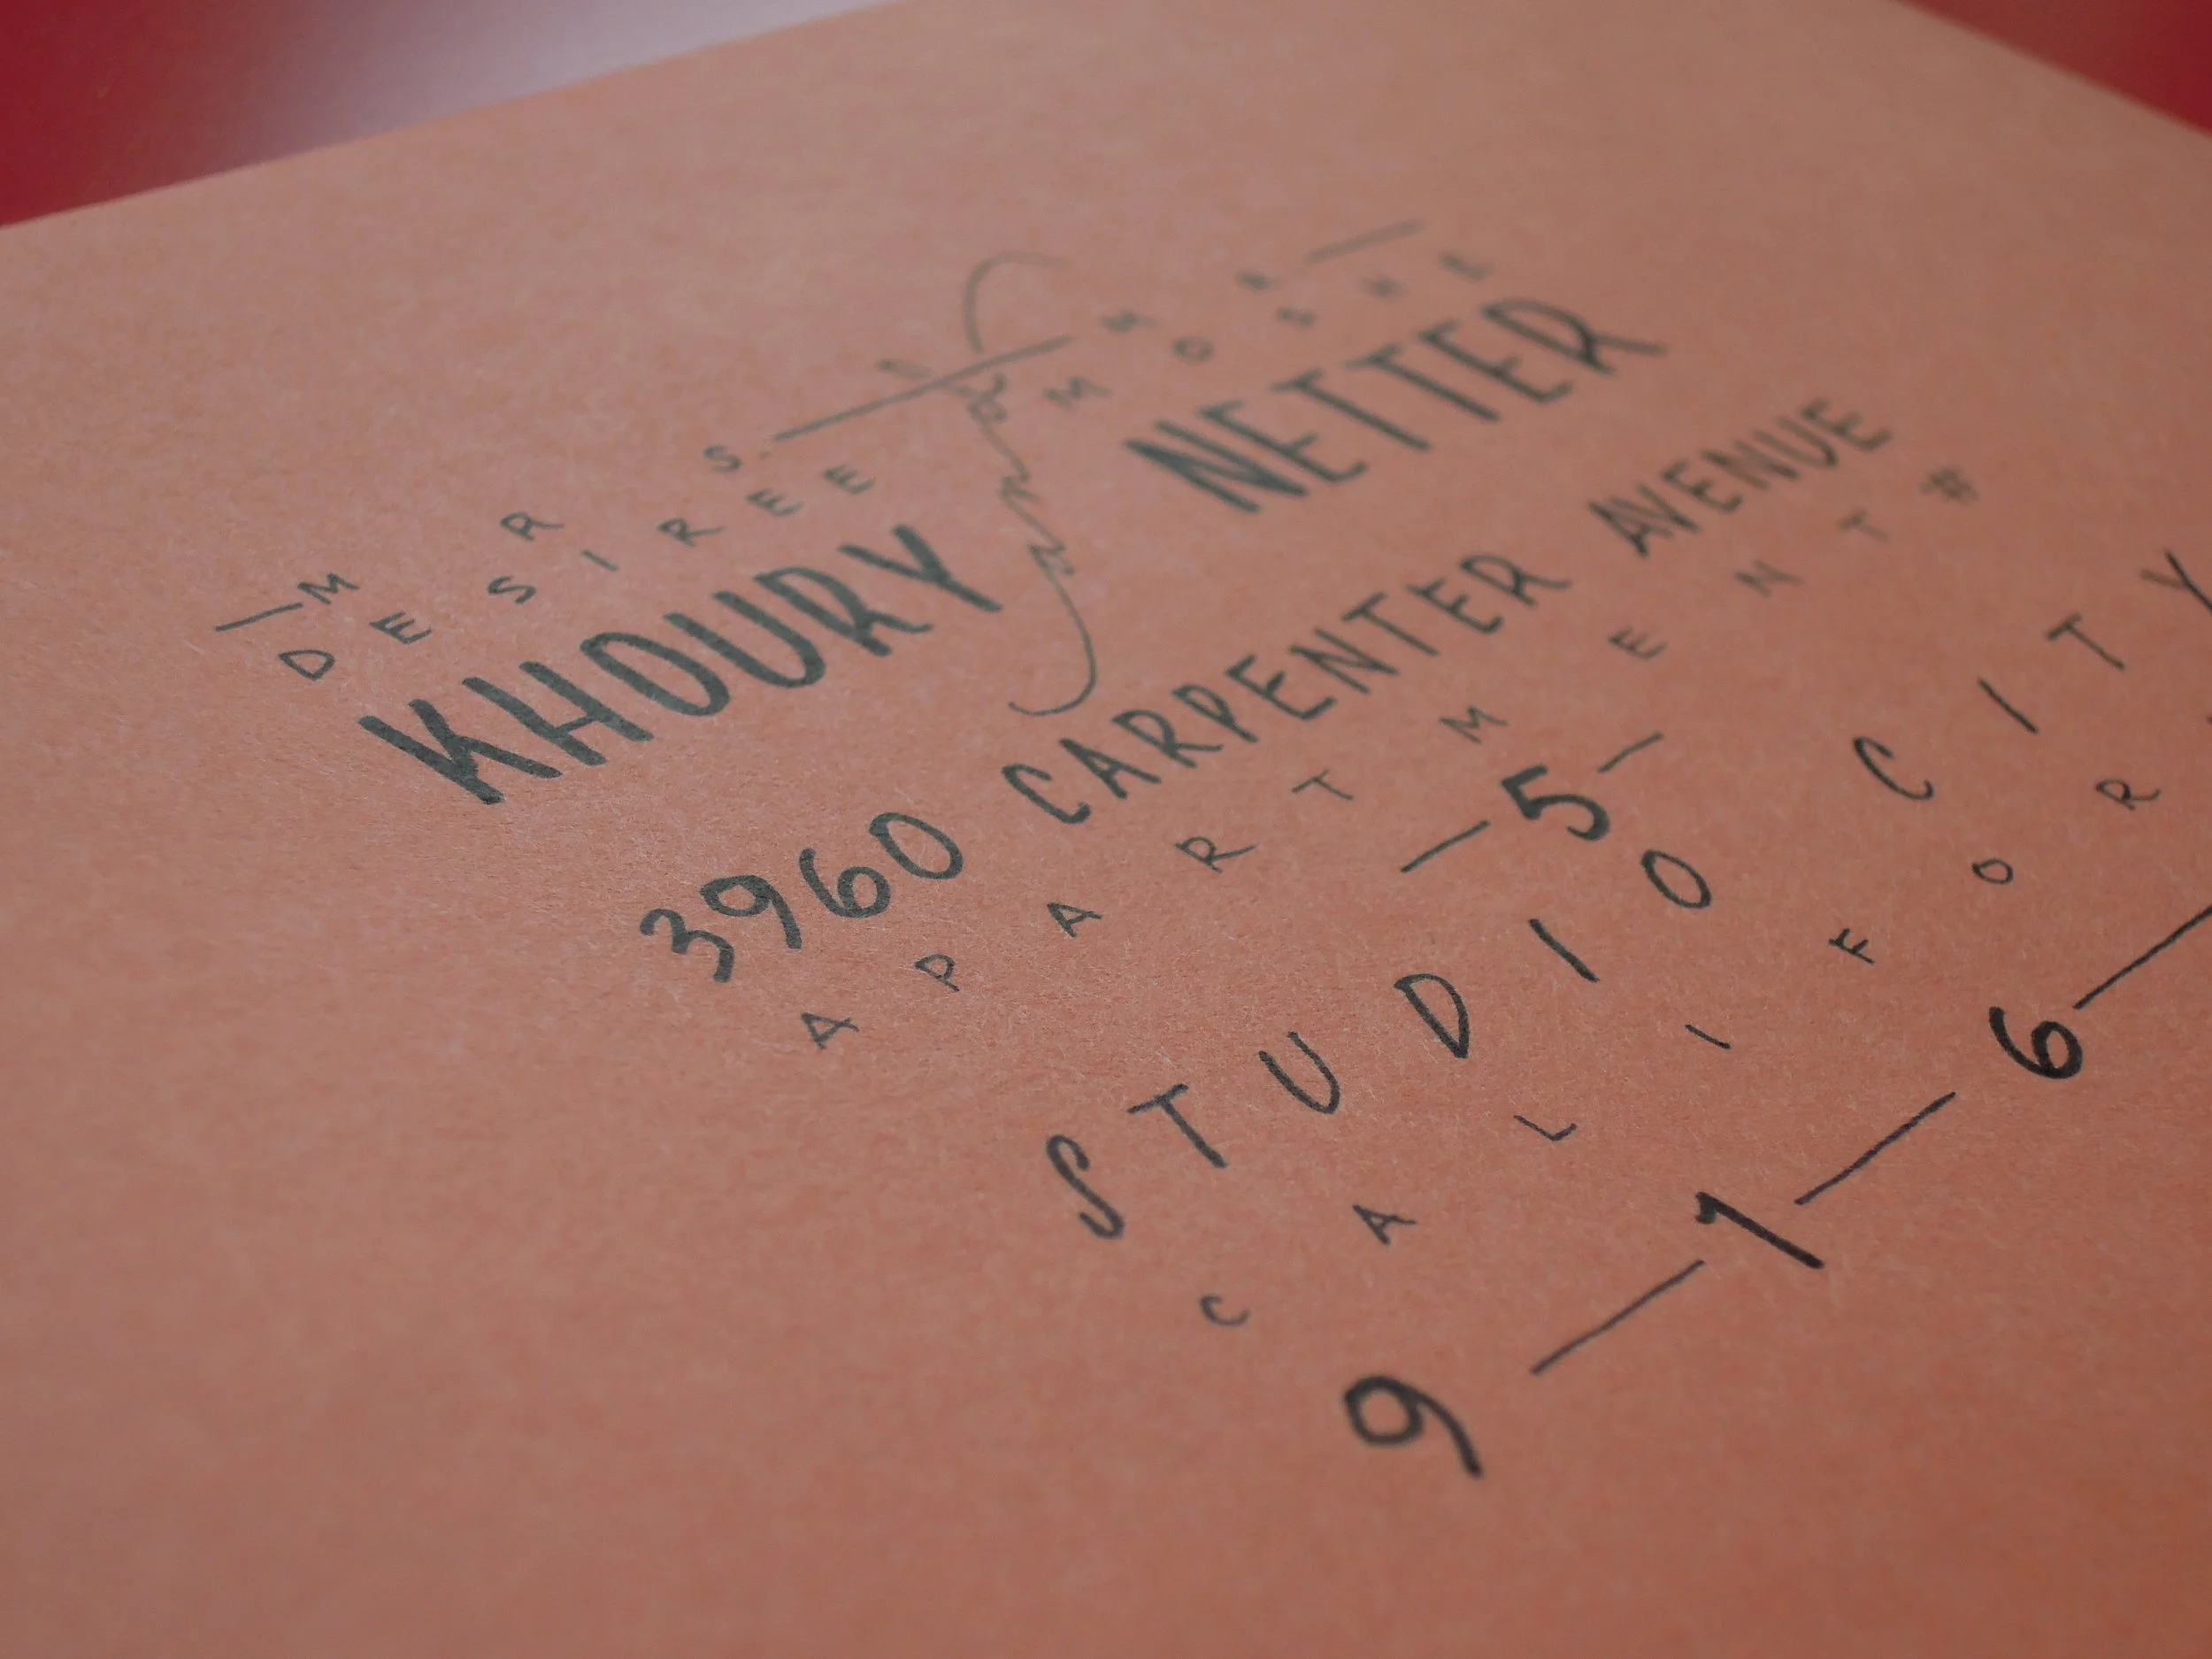 MRS. & MR.
DESIREE MOSHE
KHOURY NETTER
3960 CARPENTER AVENUE
APARTMENT #
-5-
STUDIO CITY
CALIFOR
9-1-6-